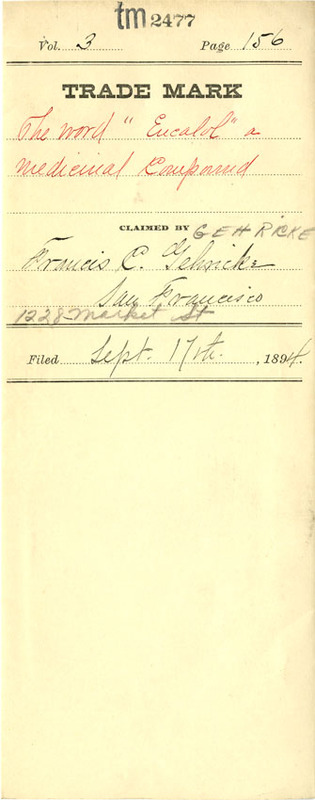 tm 2477
Vol. 3 Page 156
TRADE MARK
The word "Eucalol" a
medicinal Compound
CLAIMED BY GEHRICKE
Francis C. Gehricke
San Francisco
1228 Market St
Filed Sept. 17th, 1894.